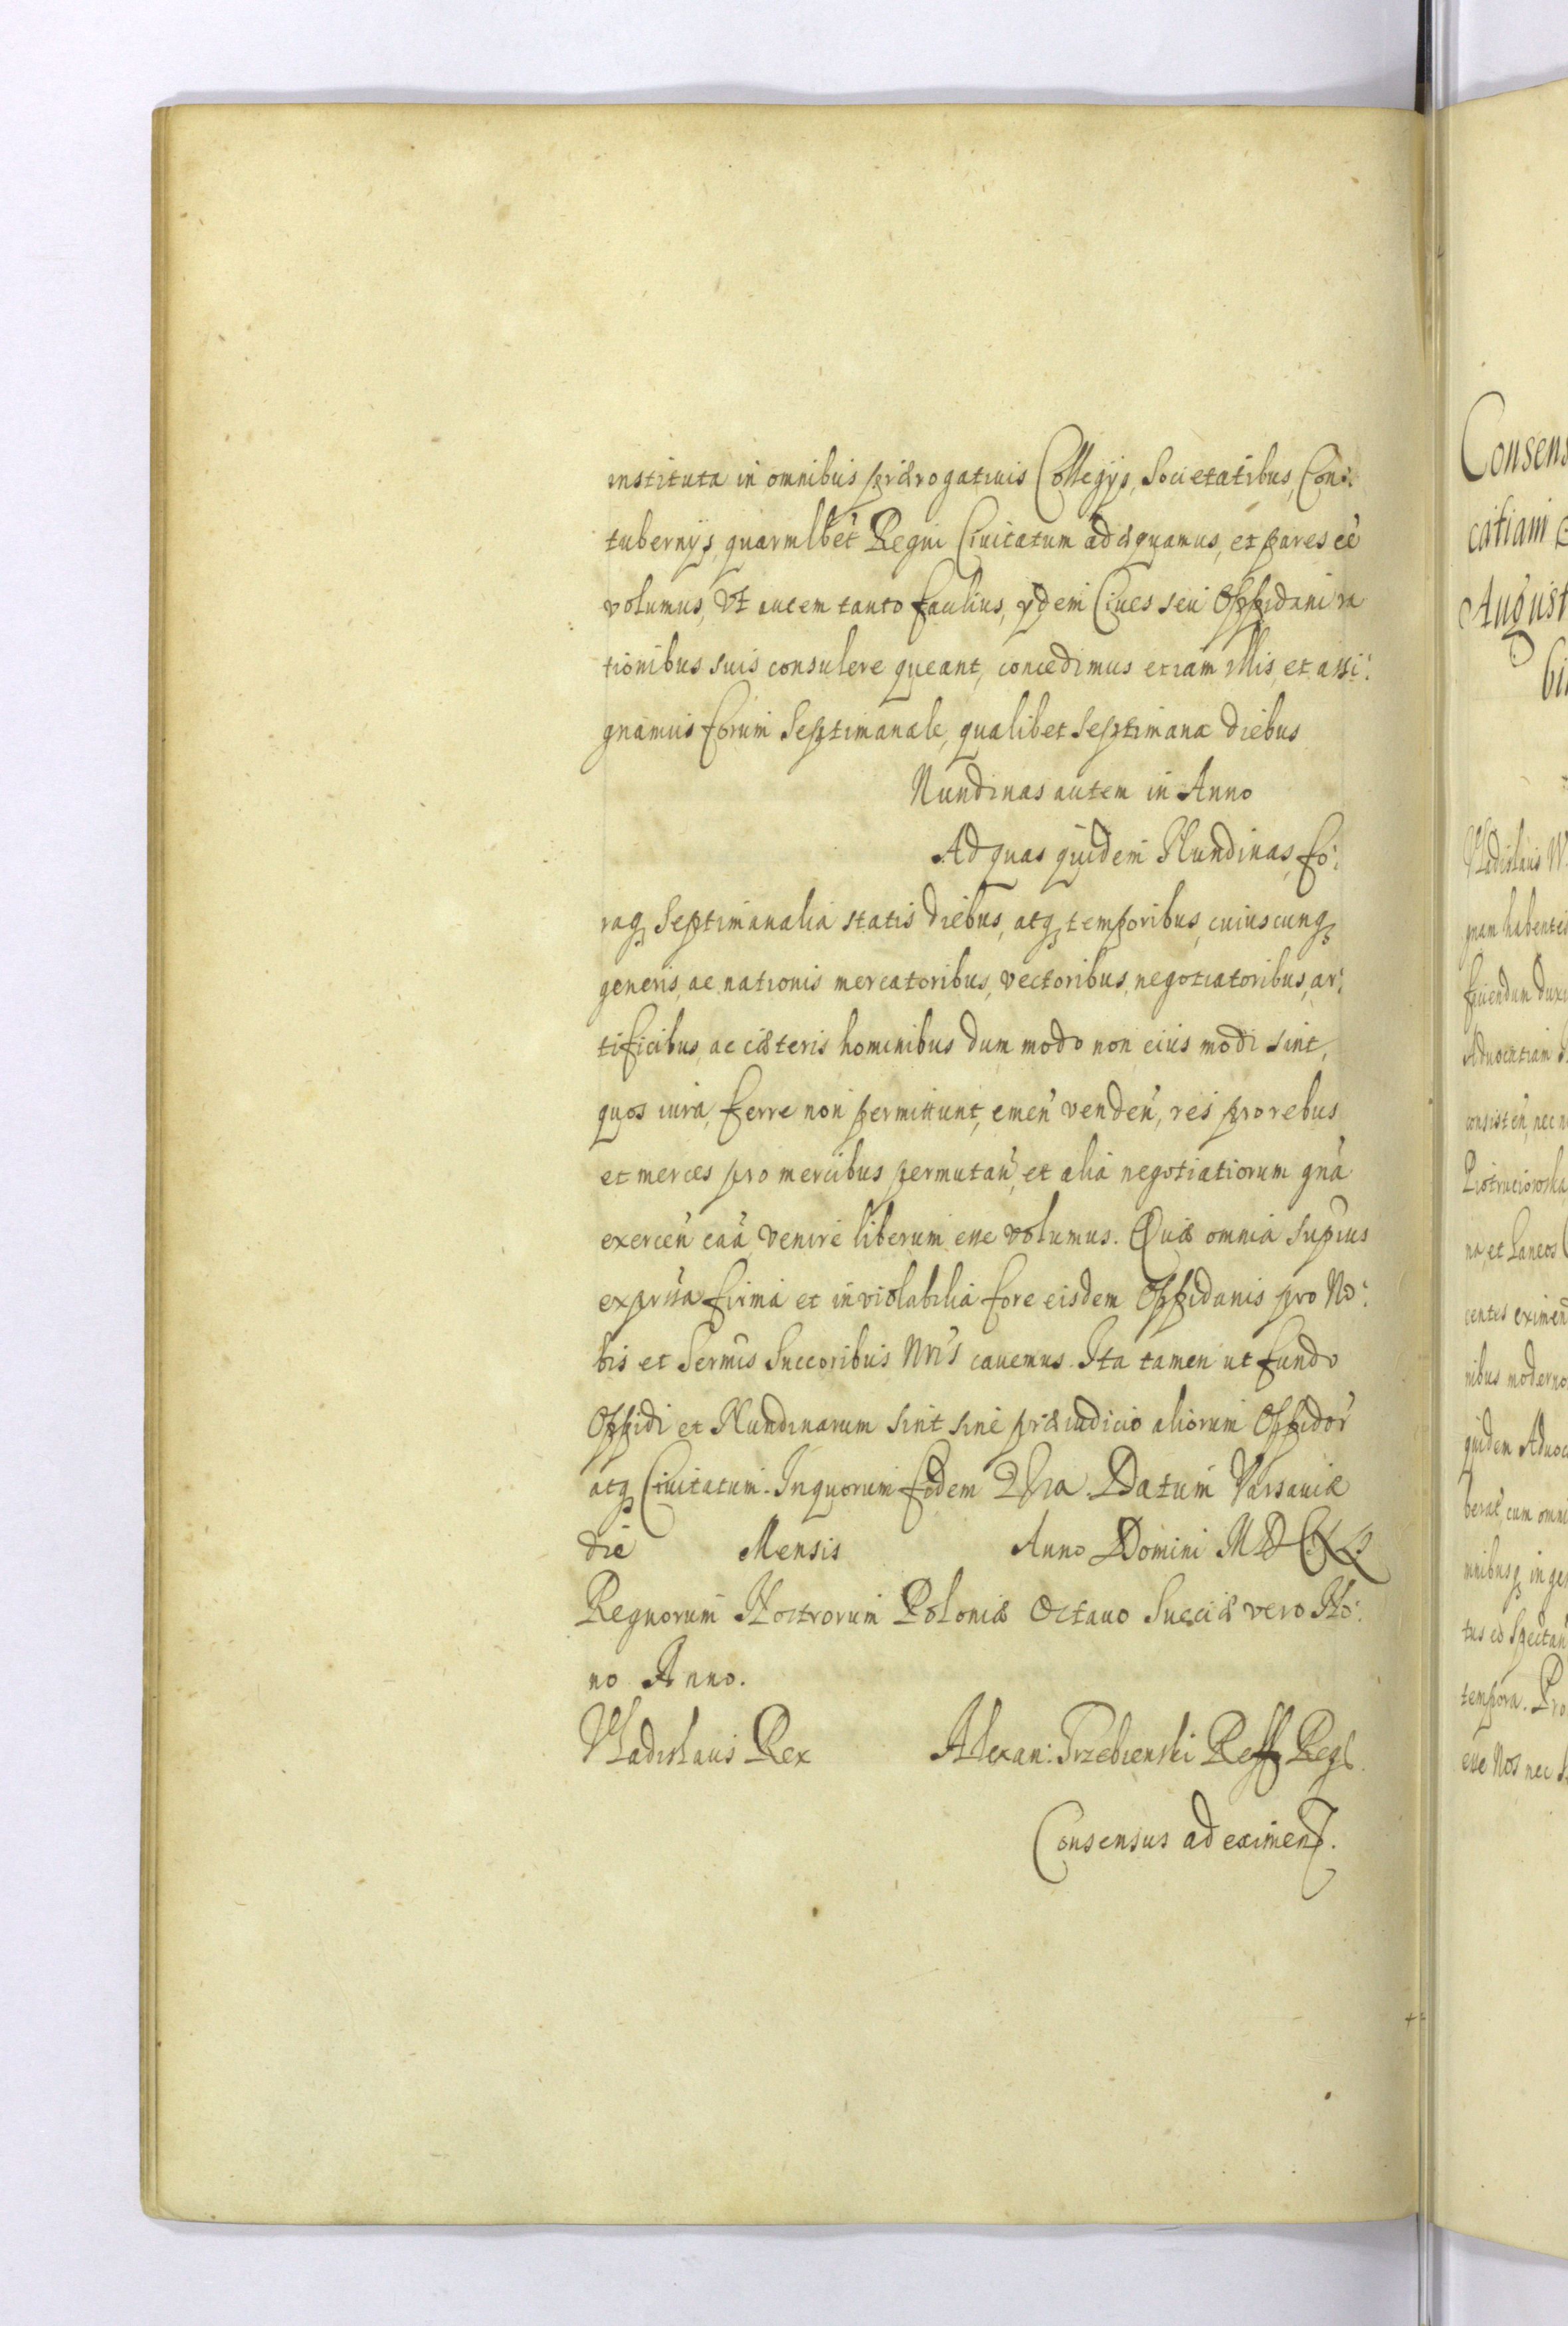 instituta in omnibus prærogativis Collegijs, Societatibus, Con:
tubernijs, quarumlbet Regni Civitatum adæquamus, et pares eē
volumus, Vt autem tanto facilius, ydem Cives seu Oppidani ra
tionibus suis consulere queant, concedimus etiam illis, et assi:
gnamus forum Septimanale, qualibet Septimana diebus
Nundinas autem in Anno
Ad quas quidem Nundinas, fo:
raq, Septimanalia statis diebus, atq temporibus, cuiuscunq
generis, ac nationis mercatoribus, vectoribus, negotiatoribus, ar:
tificibus, ac cæteris hominibus dum modo non eius modi sint,
quos iura, ferre non permittunt, emen̄ venden̄, res pro rebus
et merces pro mercibus permutan̄, et alia negotiatiorum gn̄a
exercen̄ caā venire liberum esse volumus. Quæ omnia supius
exprssa firma et inviolabilia fore eisdem Oppidanis pro No:
bis et Sermis Succoribus Nris cavemus. Ita tamen ut fundo
Oppidi et Nundinarum sint sine præiudicio aliorum Oppidor
atq Civitatum. In quorum fidem Datum Varsaviæ
die Mensis Anno Domini MDCXL
Regnorum Nostrorum Poloniæ Octavo Sueciæ vero No:
no Anno.
Vladislaus Rex Alexan: Trzebienski Reg
Consensus ad eximend.
Consens
catiam
August
Vladislaus
gnam habentes
Advocatiam
consisten, nec
na, et Laneos
centes eximend
nibus moderno
quidem Advoc
cum omni
tempora. Pro
esse Nos nec